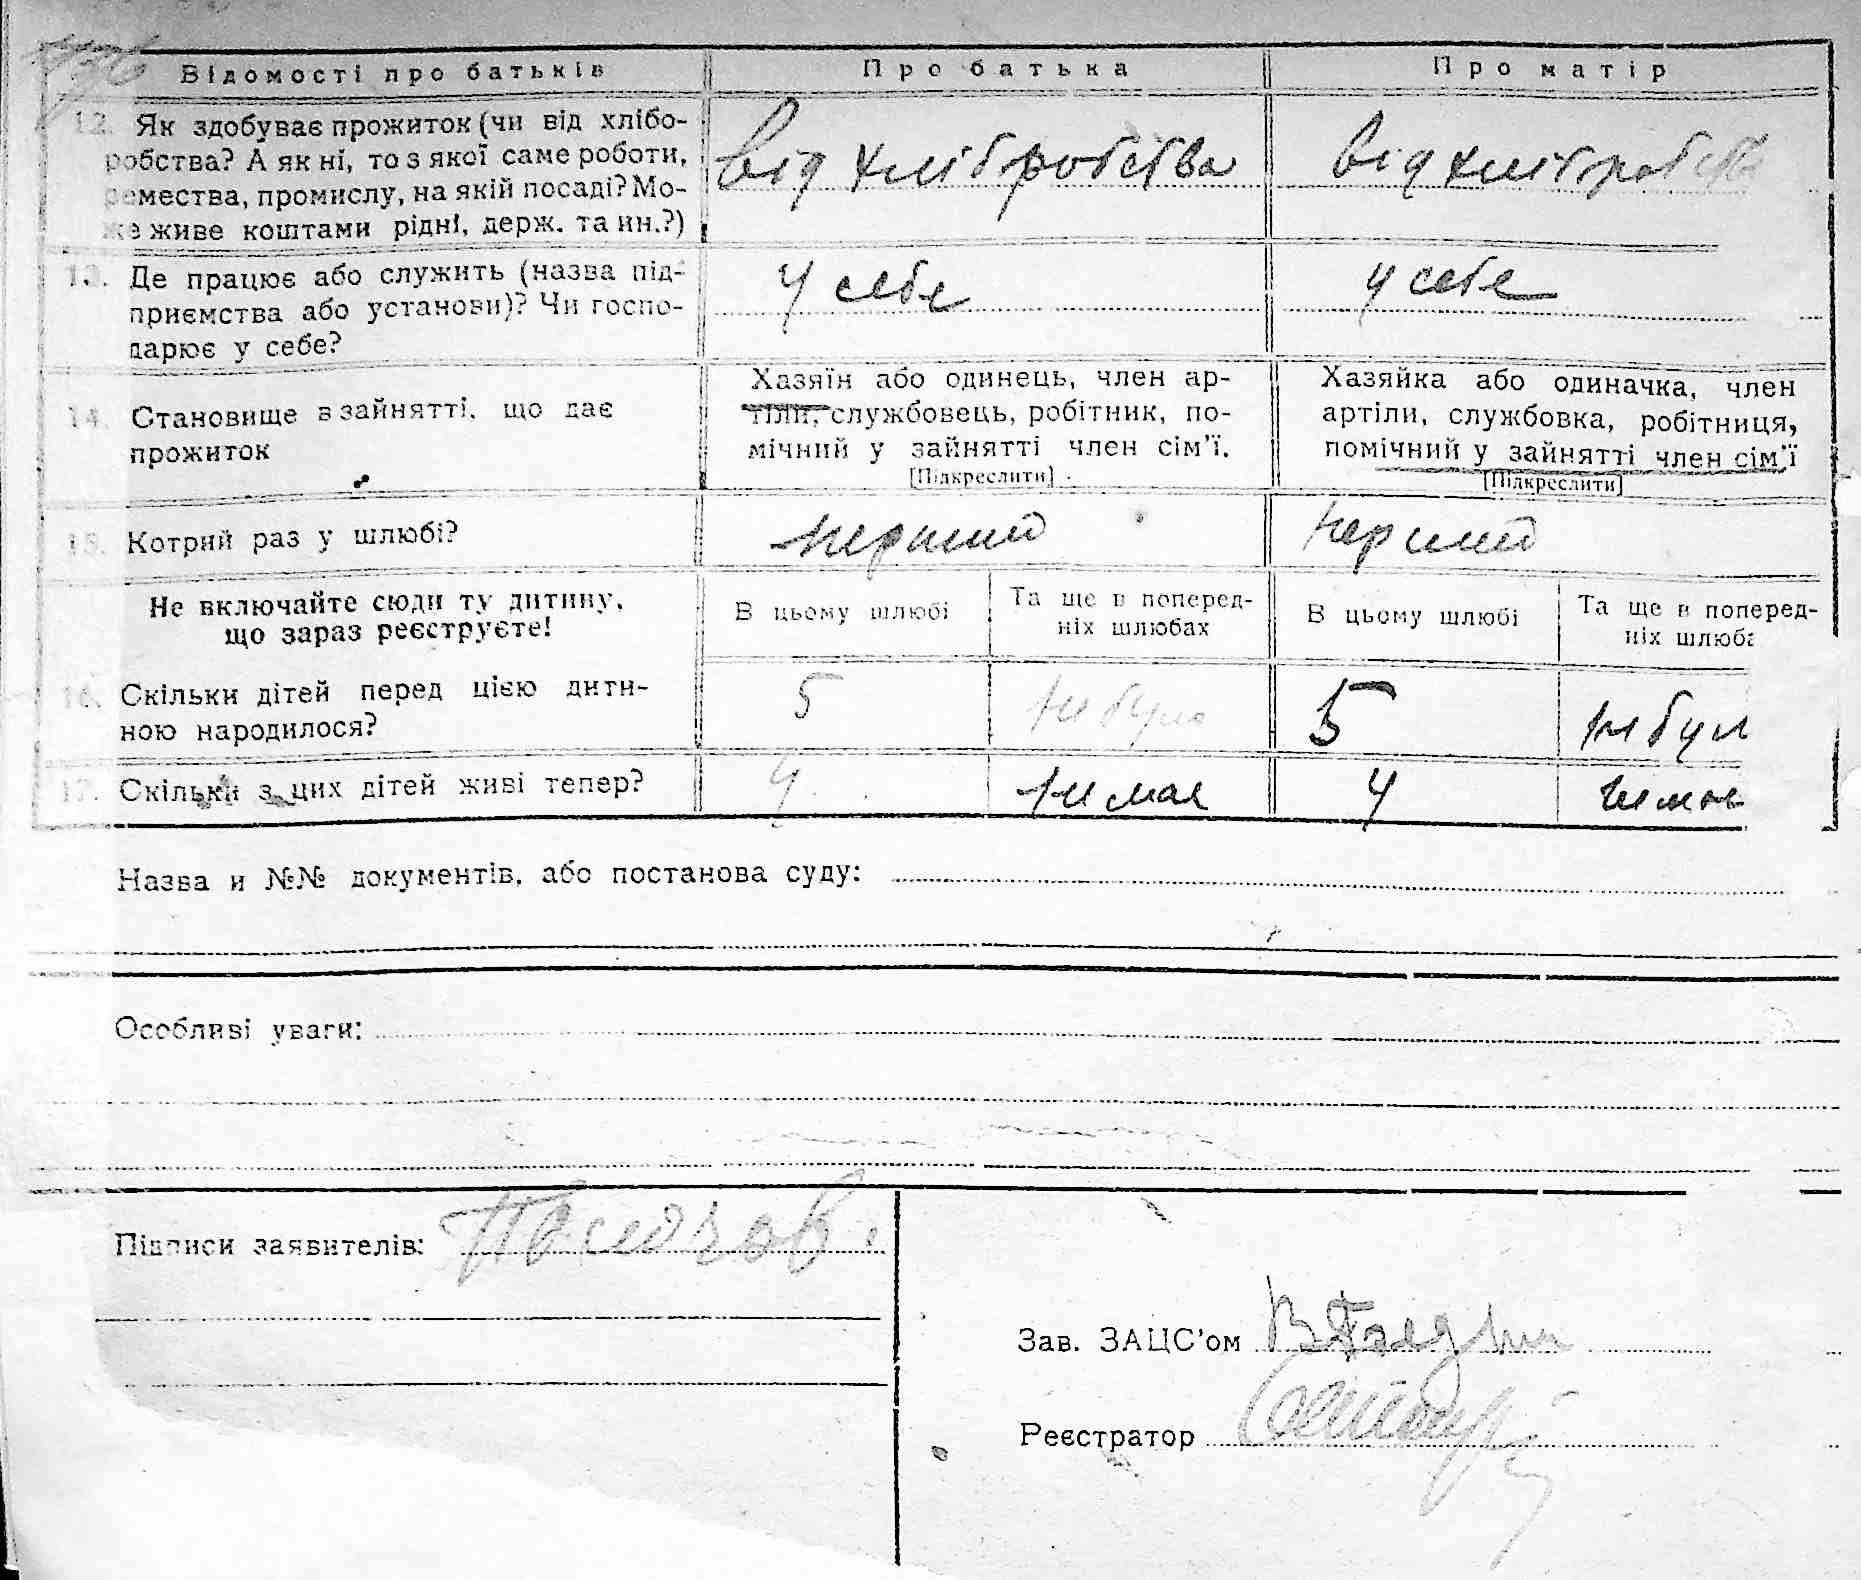 Відомості про батьків Про батька Про матір
12. Як здобуває прожиток (чи від хлібо-
робства? А як ні, то з якої саме роботи,
ремества, промислу, на якій посаді? Мо-
же живе коштами рідні, держ. та ин.?)
від хліборобства від хліборобства
13. Де працює або служить (назва під-
приємства або установи)? Чи госпо-
дарює у себе?
у себе у себе
14. Становище в зайнятті, що дає
прожиток
Хазяїн або одинець, член ар-
тіли, службовець, робітник, по-
мічний у зайнятті член сім'ї.
[Підкреслити]
Хазяйка або одиначка, член
артіли, службовка, робітниця,
помічний у зайнятті член сім'ї
[Підкреслити]
15. Котрий раз у шлюбі? перший перший
Не включайте сюди ту дитину,
що зараз реєструєте!
В цьому шлюбі
Та ще в поперед-
ніх шлюбах
В цьому шлюбі
Та ще в поперед-
ніх шлюба
16. Скільки дітей перед цією дити-
ною народилося?
5 не було 5 не бул
17. Скільки з цих дітей живі тепер? 4 не має 4 не має
Назва и №№ документів, або постанова суду:
Особливі уваги:
Підписи заявителів:
Зав. ЗАЦС'ом
Реєстратор